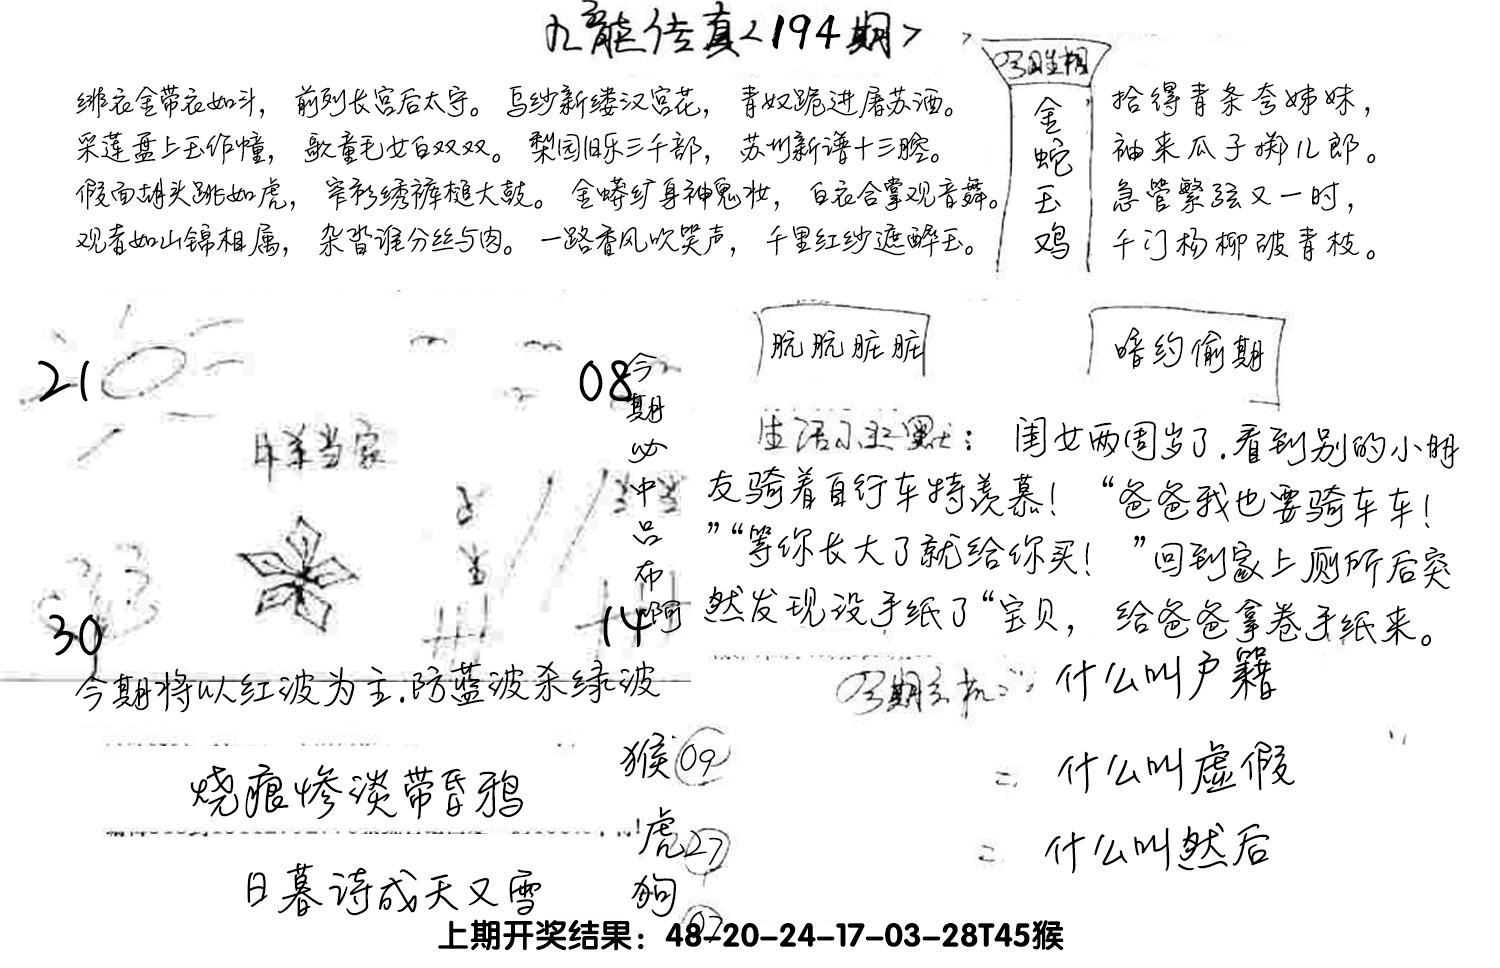 九龍传真<194期>
绯衣金带衣如斗， 前列长宫后太守。 乌纱新缕汉宫花， 青奴跪进屠苏酒。
采莲盘上玉作幢， 歌童毛女白双双。 梨园旧乐三千部， 苏州新谱十三腔。
假面胡头跳如虎， 窄衫绣裤槌大鼓。 金蟒纩身神鬼妆， 白衣合掌观音舞。
观者如山锦相属， 杂沓谁分丝与肉。 一路香风吹笑声， 千里红纱遮醉玉。
金蛇玉鸡
拾得青条夸姊妹，
袖来瓜子掷儿郎。
急管繁弦又一时，
千门杨柳破青枝。
21
08
今期必中吕布啊
羊当家
30
14
今期将以红波为主.防蓝波杀绿波
朊朊脏脏
暗约偷期
生活小幽默： 闺女两周岁了.看到别的小朋
友骑着自行车特羡慕！ “爸爸我也要骑车车！
”“等你长大了就给你买！ ”回到家上厕所后突
然发现没手纸了“宝贝， 给爸爸拿卷手纸来。
今期玄机：
什么叫户籍
什么叫虚假
什么叫然后
烧痕惨淡带昏鸦
日暮诗成天又雪
猴 09
虎 27
狗
上期开奖结果：48-20-24-17-03-28T45猴